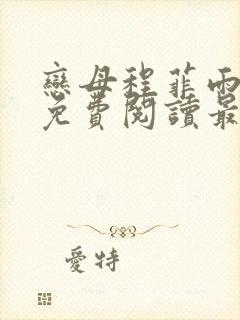 戀母程菲雨
免費閱讀最
愛特